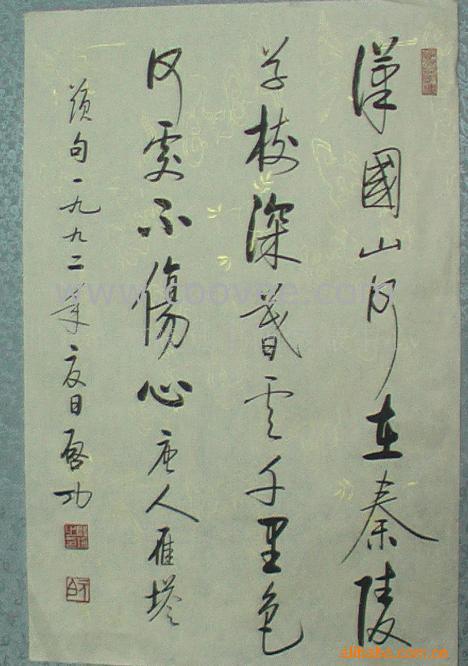 漢國山河在秦陵
草樹深暮雲千里色
何處不傷心唐人雁塔
題句一九九二年夏日啓功
www.coovee.com
alibaba.com.cn